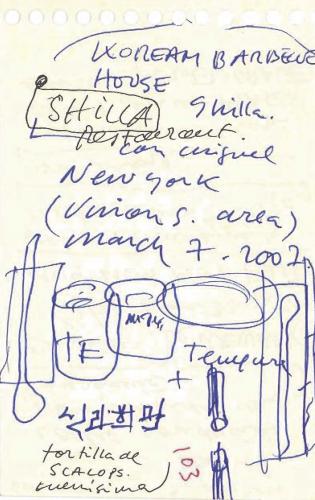 KOREAM BARBECUE
HOUSE
SHILLA Shilla.
Restaurant.
con miguel
New York
(Union S. area)
March 7. 2007.
TE
Tempura
+
신라회관
tortilla de
SCALOPS.
buenísima
103